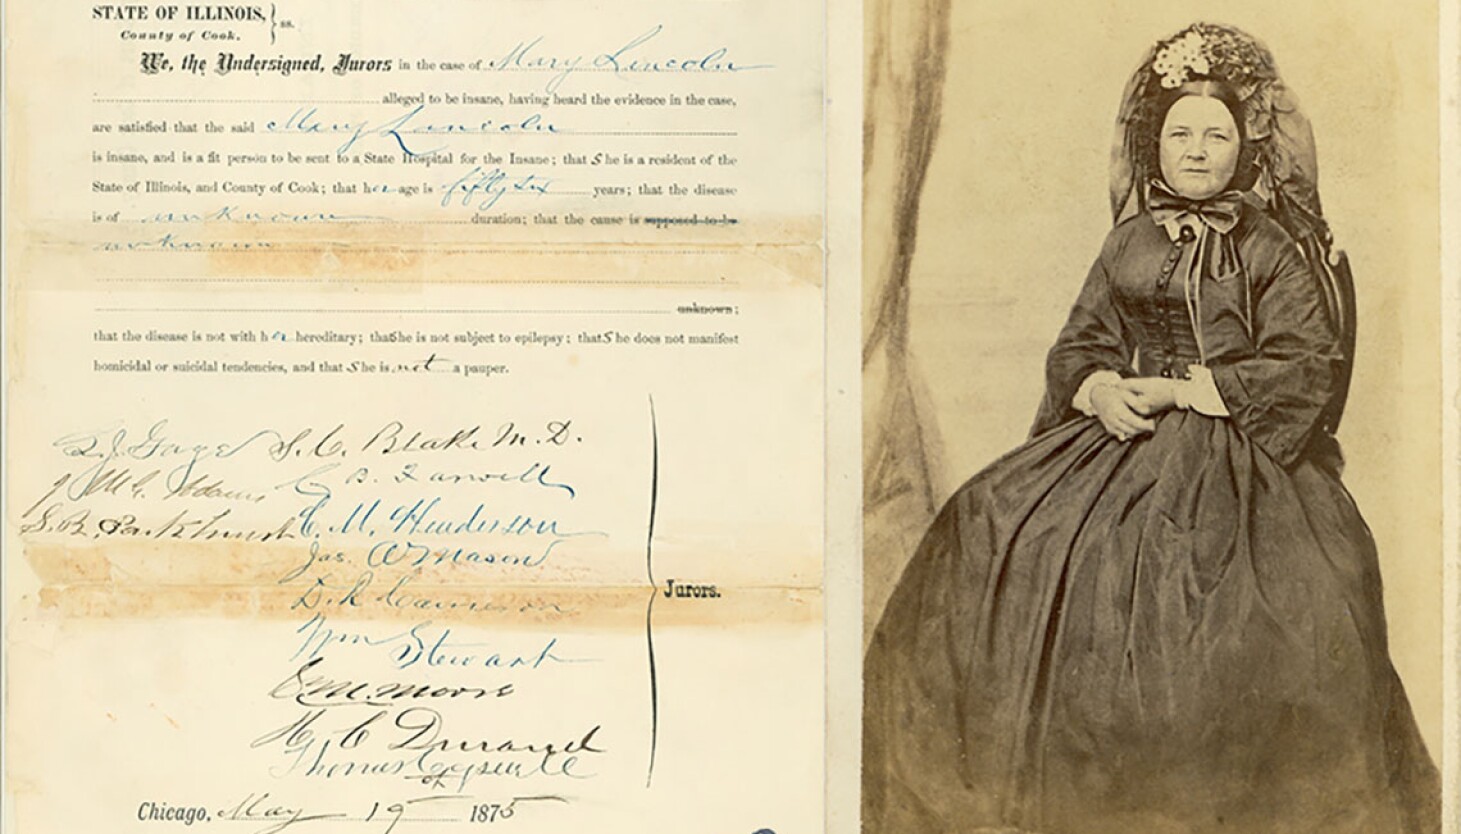 STATE OF ILLINOIS, } ss.
County of Cook.
We, the Undersigned, Jurors in the case of Mary Lincoln
alleged to be insane, having heard the evidence in the case,
are satisfied that the said Mary Lincoln
is insane, and is a fit person to be sent to a State Hospital for the Insane; that She is a resident of the
State of Illinois, and County of Cook; that her age is fifty six years; that the disease
is of unknown duration; that the cause is supposed to be
unknown
unknown;
that the disease is not with her hereditary; that She is not subject to epilepsy; that She does not manifest
homicidal or suicidal tendencies, and that She is not a pauper.
L. J. Gage S. C. Blake M. D.
J McG. Adams C B. Farwell
S. B. Parkhurst C. M. Henderson
Jas. A Mason
Jurors.
D. R Cameron
Wm Stewart
S M. Moore
H. C Durand
Thomas Cogswell
Chicago, May 19 1875